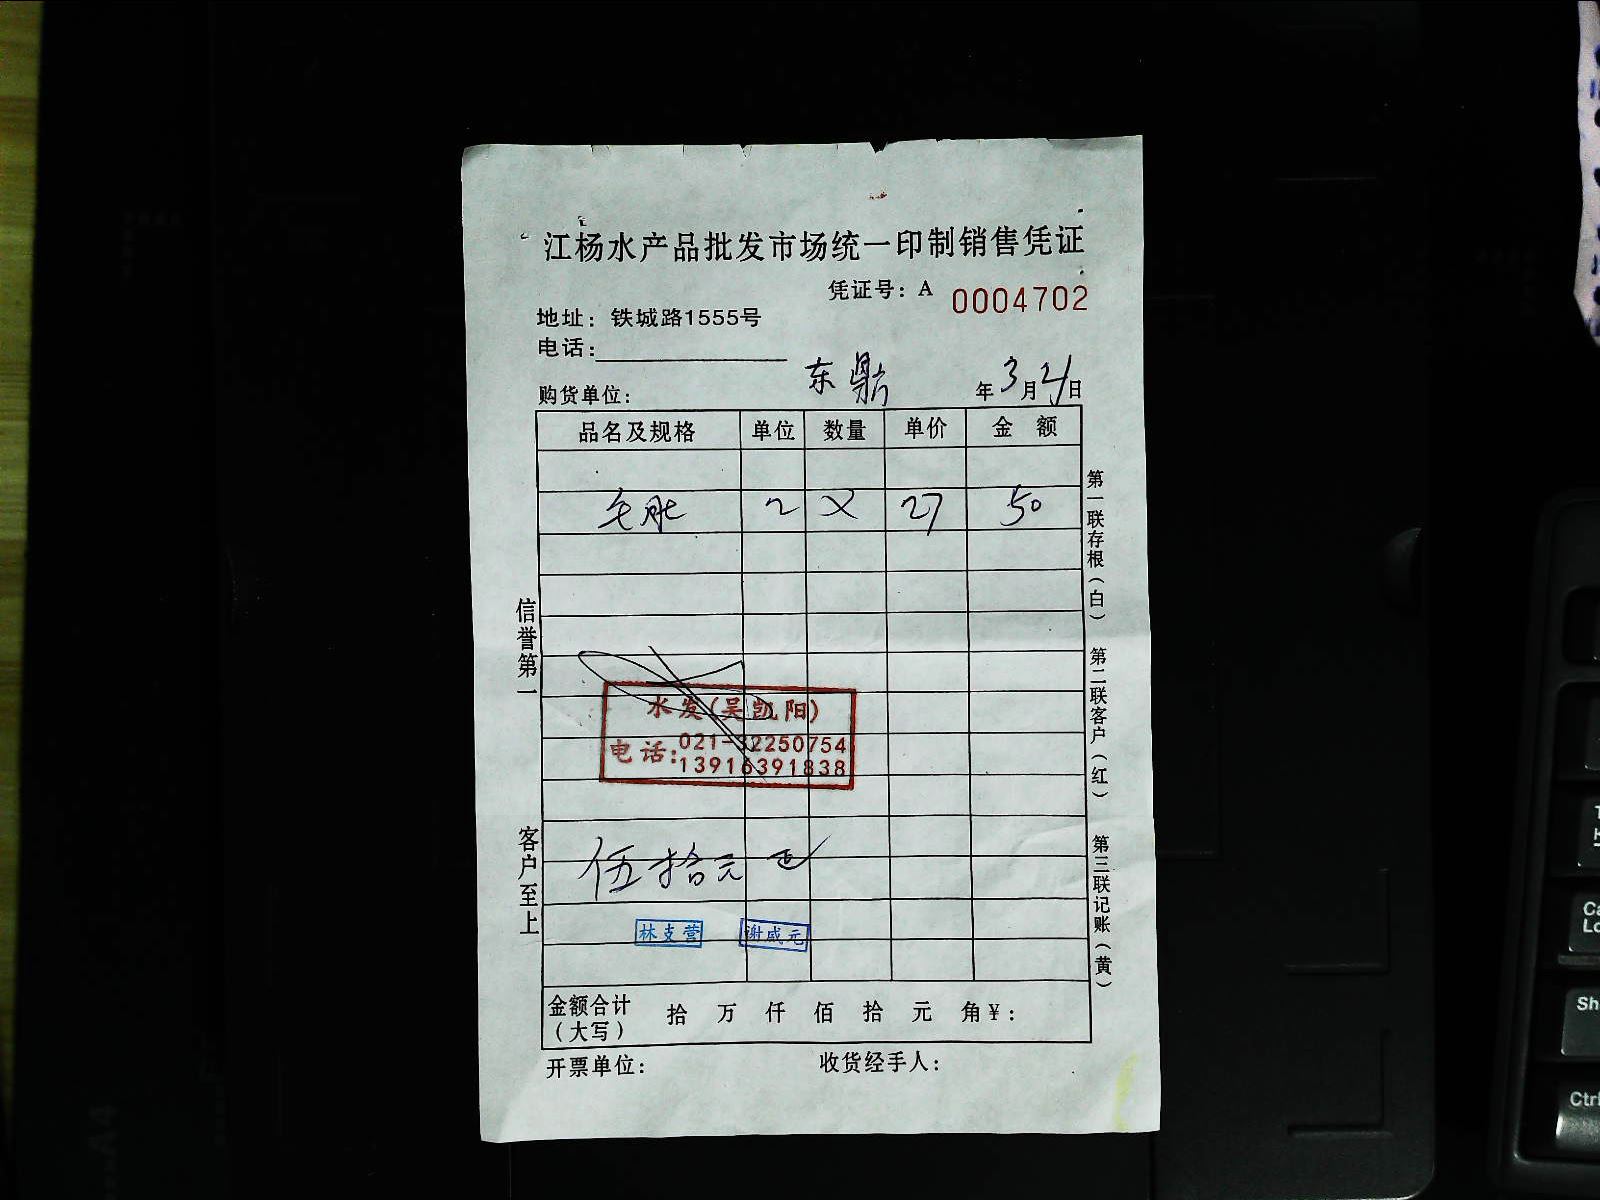 江杨水产品批发市场统一印制销售凭证
凭证号：A 0004702
地址：铁城路1555号
电话：
购货单位： 东鼎 年3月21日
品名及规格 单位 数量 单价 金 额
毛肚 2 27 50
水发(吴凯阳)
电话：021-32250754
13916391838
伍拾元正
林支营 谢咸元
金额合计（大写） 拾 万 仟 佰 拾 元 角 ¥：
开票单位： 收货经手人：
信誉第一
客户至上
第一联存根（白）
第二联客户（红）
第三联记账（黄）
A4
Sh
Ctrl